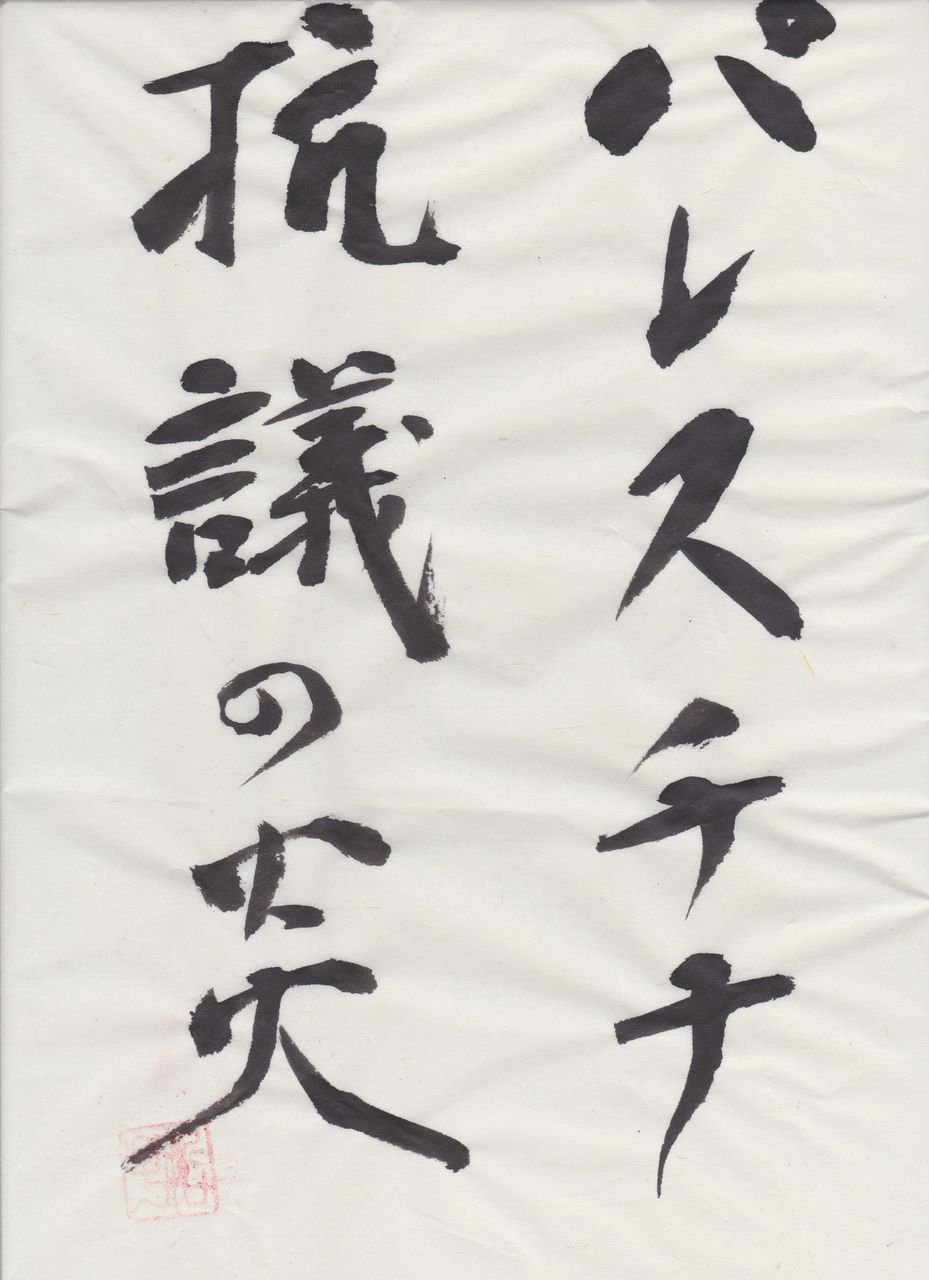 パレスチナ
抗議の炎